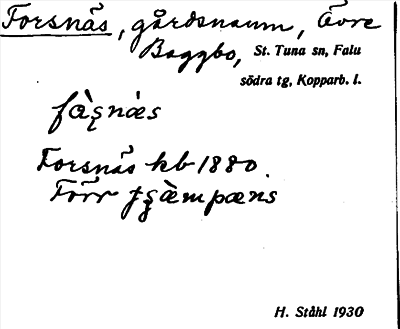 Forsnäs, gårdsnamn, Övre
Baggbo, St. Tuna sn, Falu
södra tg, Kopparb. l.
fàʂnæs
Forsnäs kb 1880.
Förr
H. Ståhl 1930